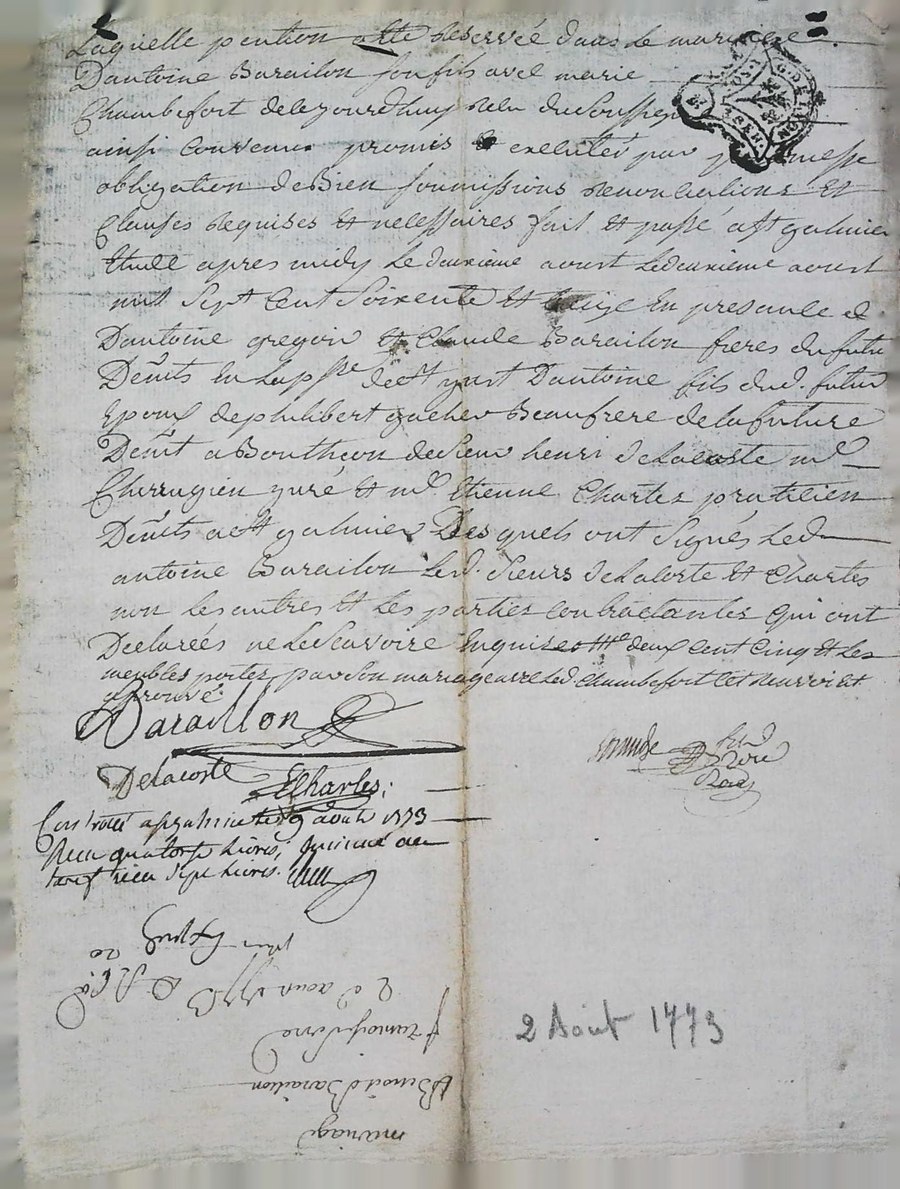 Laquelle pention a été reservée dans le mariage
Dantoine Barailon son fils avec marie
Chambefort de ce jourdhuy reçu du Soussig
ainsi convenu promis executer par promesse
obligation de Bien soumissions renonciations Et
Clauses requises et necessaires fait et passé a st galmier
Etude apres midy Le deuxieme aoust Le deuxieme aoust
mil Sept Cent Soixente Et treize En presance
Dantoine gregoir et Claude Barailon freres du futur
Deûts En la psse de st Dantoine fils du d. futur
Epoux de philibert Beaufrere de la future
Deût a Bouthéon de Sieur henri de Lacoste me
Chirurgien juré et me Etienne Charles praticien
Deûts a st galmier Des quels ont signés Led
antoine Barailon Lesd. Sieurs de Lacoste et Charles
non Les autres et Les parties contractantes qui ont
Declarées ne Le scavoire Enquis deux Cent Cinq et Les
meubles portes par son mariage avec Led. Chambefort
aprouvé
Baraillon
Delacoste
ECharles
Controllé a st galmier le 9 aout 1773
Reçu quatorse livres,
tarif reçu sept livres.
2 d aout 1773
Benoit Barailon
mariage
2 Août 1773